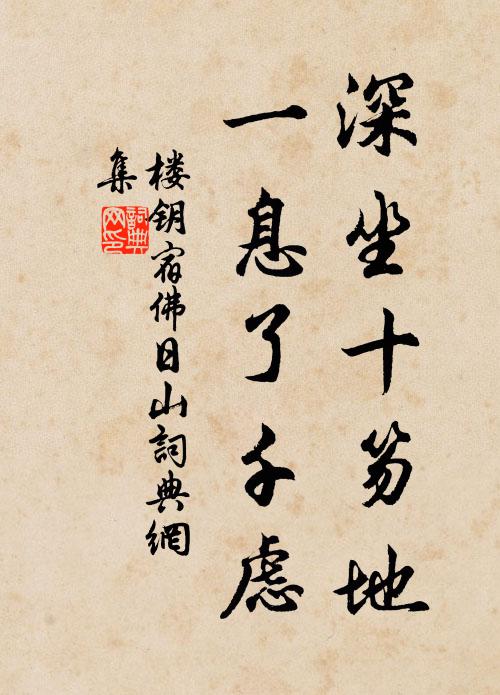 深坐十笏地
一息了千虑
楼钥宿佛日山詞典網
集
詞典網印